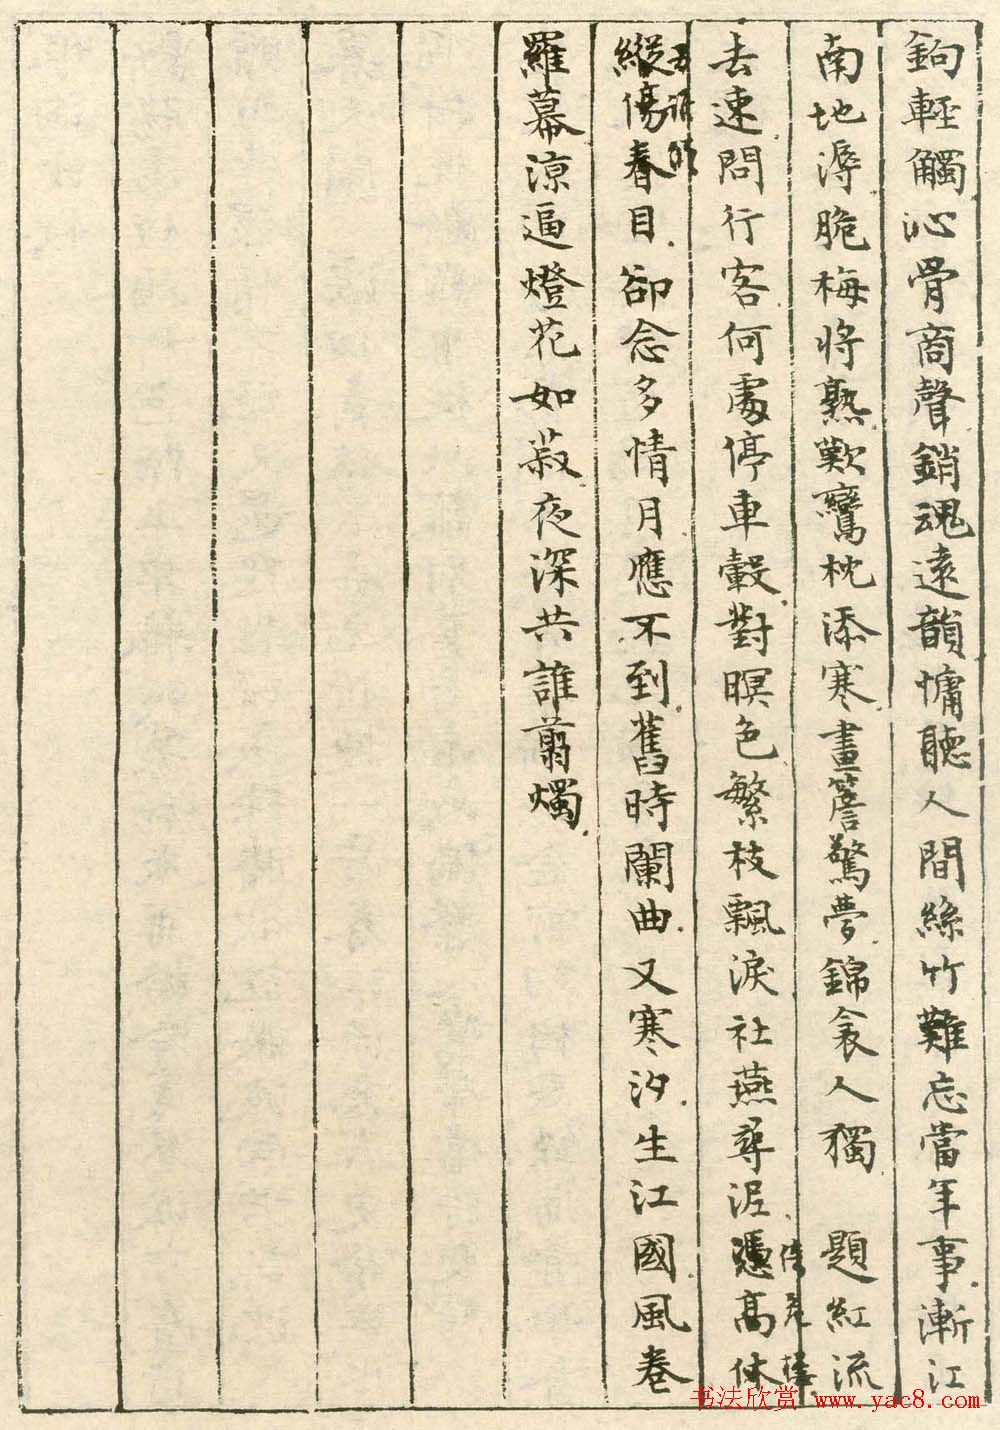 鉤輕觸沁骨商聲銷魂遠韻慵聽人間絲竹難忘當年事漸江
南地溽脆梅將熟歎鸞枕添寒畫簷驚夢錦衾人獨　題紅流
去速問行客何處停車轂對暝色繁枝飄淚社燕尋泥憑高休
倚危樓
縱傷春目卻念多情月應不到舊時闌曲又寒汐生江國風卷
羅幕涼逼燈花如菽夜深共誰翦燭
书法欣赏 www.yac8.com